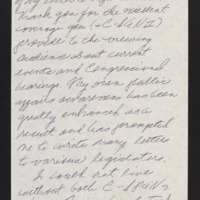 thank you for the excellent
coverage you (+ C-SPAN II)
provide to the viewing
audience about current
events and Congressional
hearings. My own public
affairs awareness has been
greatly enhanced as a
result and has prompted
me to write many letters
to various legislators.
I could not live
without both C-SPANs